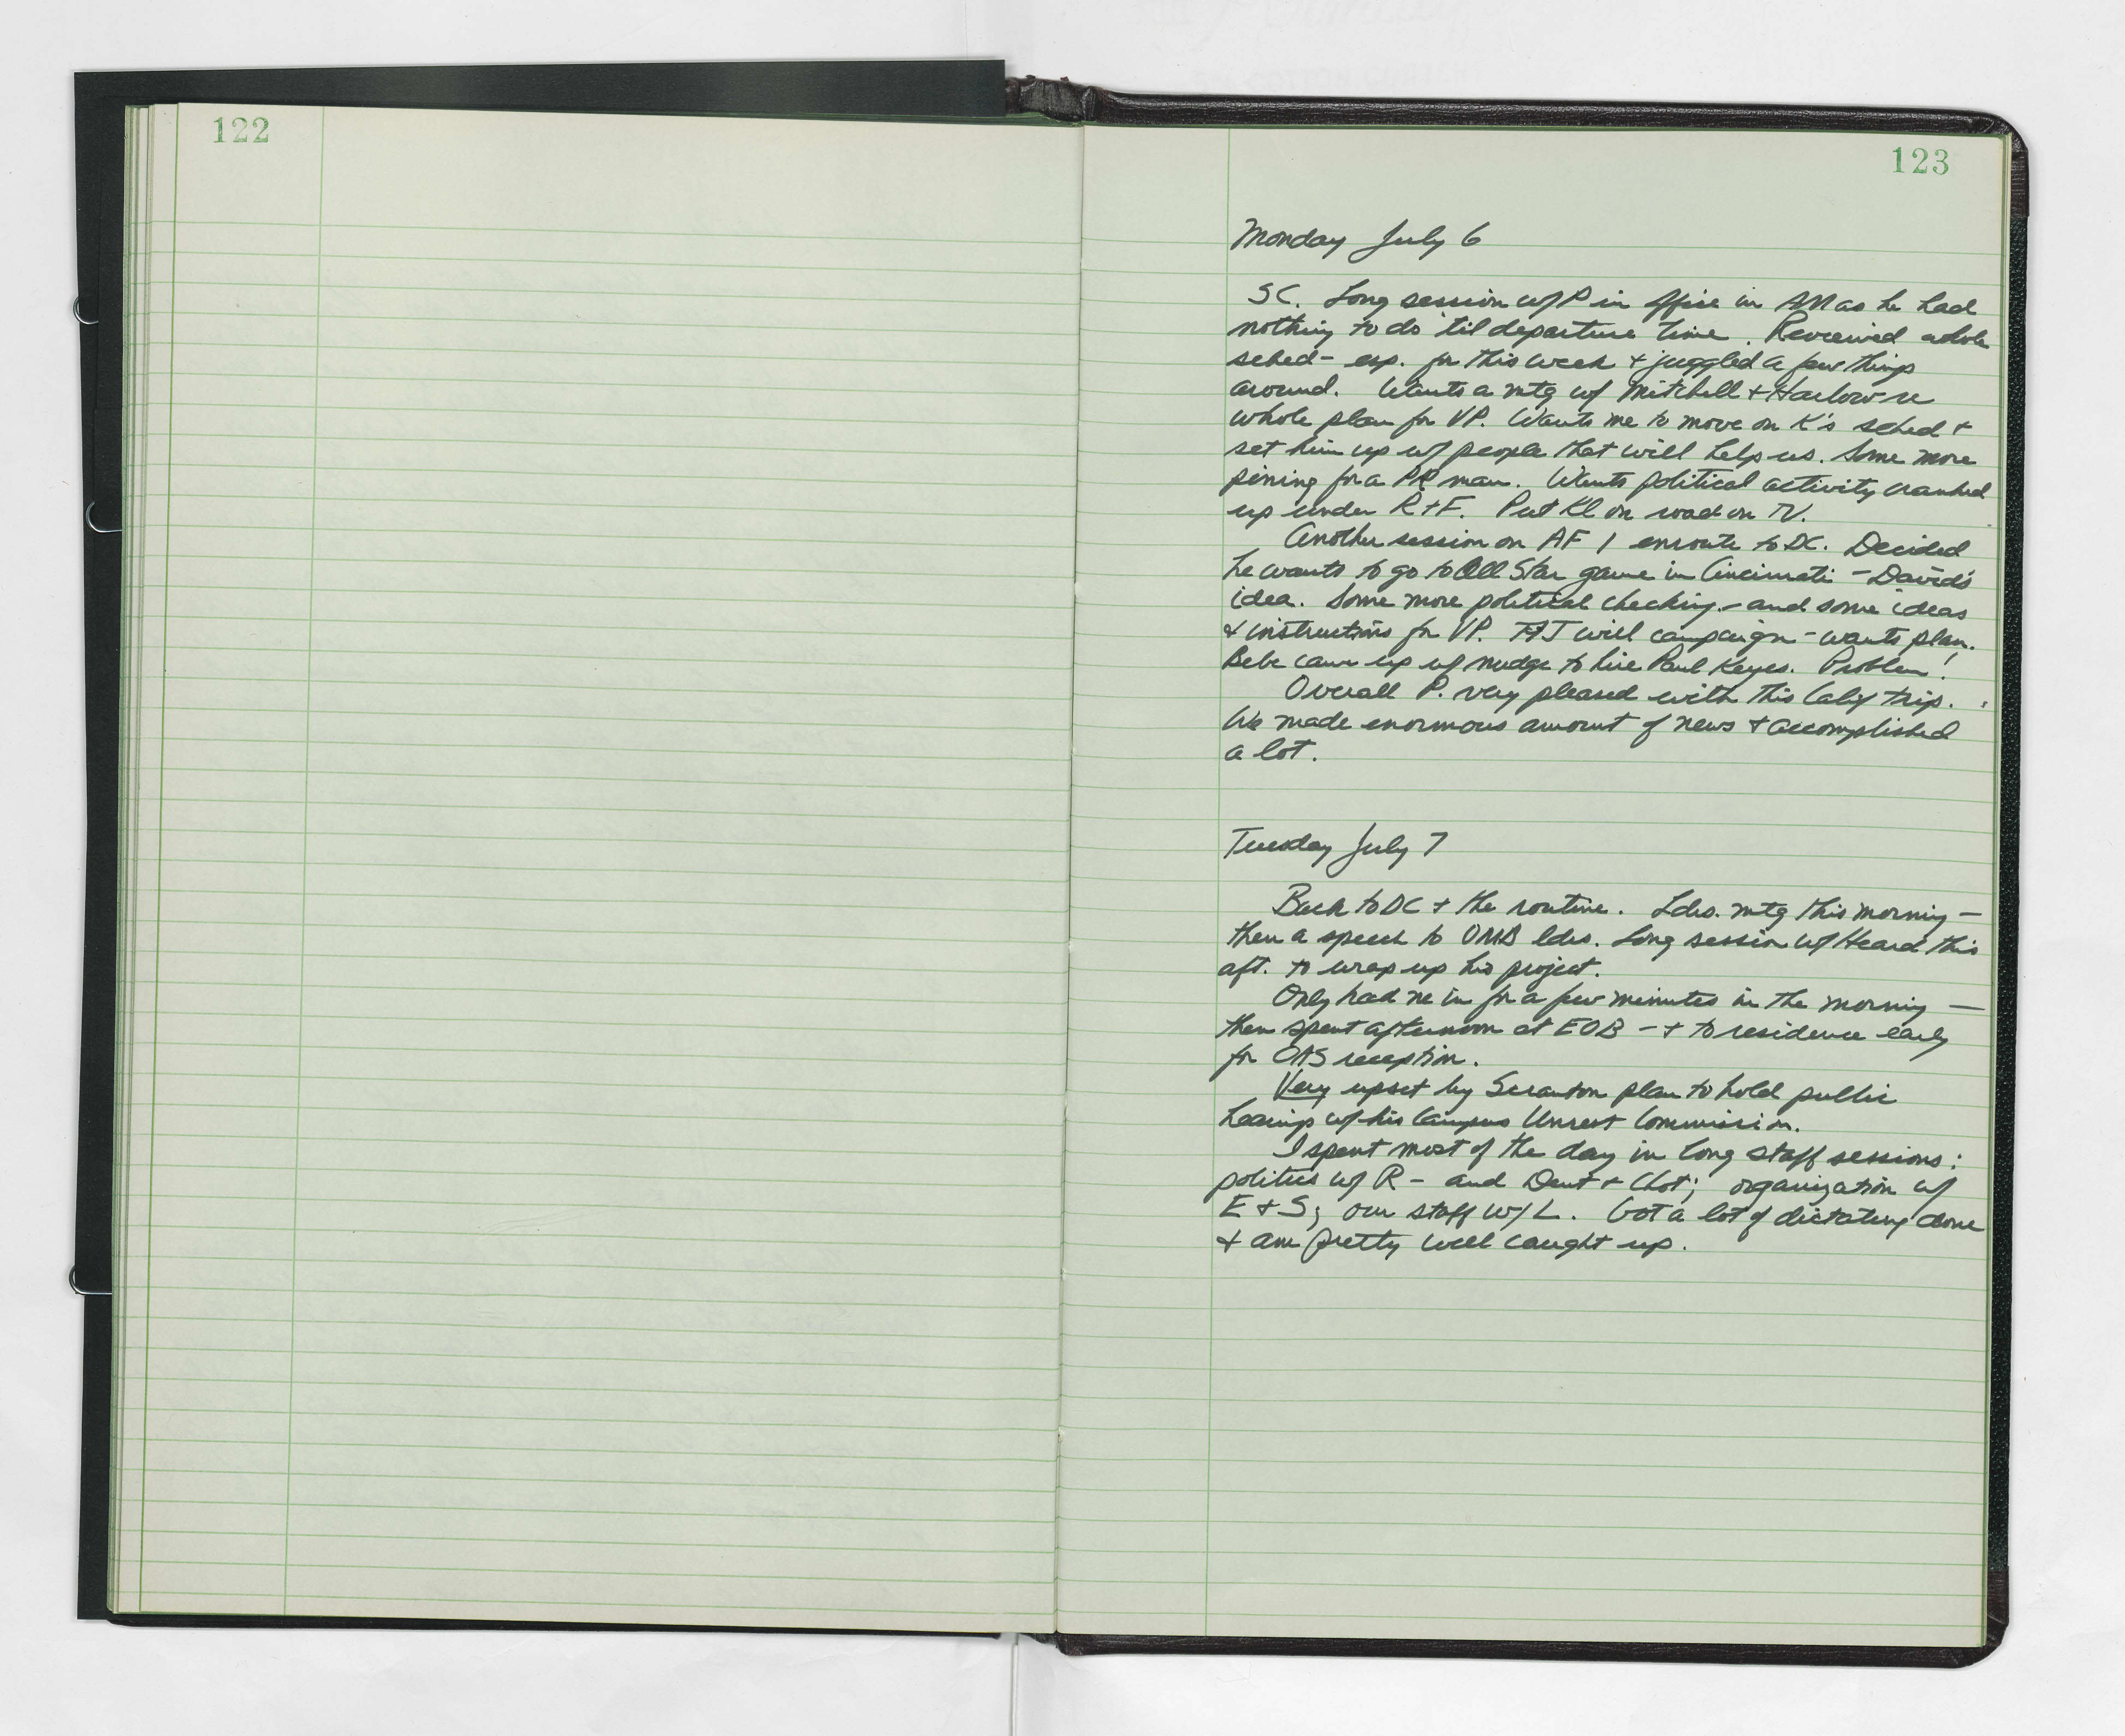 122
123
Monday July 6
SC. Long session w/P in office in AM as he had
nothing to do 'til departure time. Reviewed whole
sched - esp. for this week + juggled a few things
around. Wants a mtg w/ Mitchell + Harlow re
whole plan for VP. Wants me to move on K's sched +
set him up w/ people that will help us. Some more
pining for a PR man. Wants political activity cranked
up under R+F. Put Kl on road on TV.
Another session on AF 1 enroute to DC. Decided
he wants to go to All Star game in Cincinnati - David's
idea. Some more political checking - and some ideas
+ instructions for VP. T+J will campaign - wants plan.
Bebe came up w/ nudge to hire Paul Keyes. Problem!
Overall P. very pleased with this Calif trip.
We made enormous amount of news + accomplished
a lot.
Tuesday July 7
Back to DC + the routine. Ldrs. mtg this morning -
then a speech to OMB ldrs. Long session w/ Heard this
aft. to wrap up his project.
Only had me in for a few minutes in the morning -
then spent afternoon at EOB - + to residence early
for OAS reception.
Very upset by Scranton plan to hold public
hearings w/ his Campus Unrest Commission.
I spent most of the day in long staff sessions:
politics w/ R - and Dent + Chot; organization w/
E + S; our staff w/ L. Got a lot of dictating done
+ am pretty well caught up.